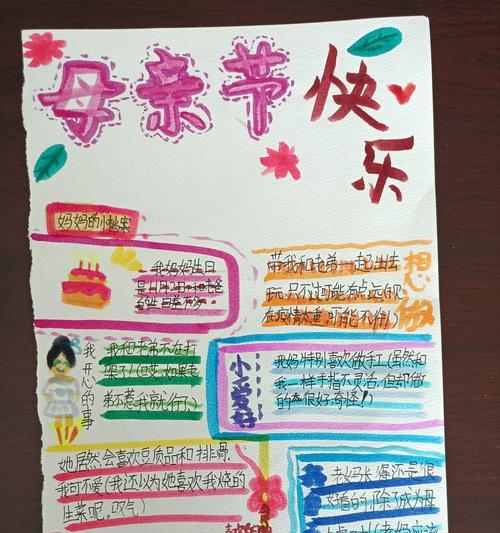 母亲节快
乐
妈妈的小档案
我妈妈生日
是11月2日，和爸爸
的生日差不多
带我和老弟一起出去
玩，只不过可能有点远（现
在疫情太重，可能不行）
想做
我开心的事
我和老弟不在打
架了！（哎，如果老
弟不惹我就行）
小爱好
我妈特别喜欢做手工（虽然和
我一样手指不灵活，但却做
的很好，奇怪！）
她居然会喜欢豆质品和排骨，
我可不爱（我还以为她喜欢我烧的
生菜呢。叹气）
老妈长得还是很
好看的，除了成为母